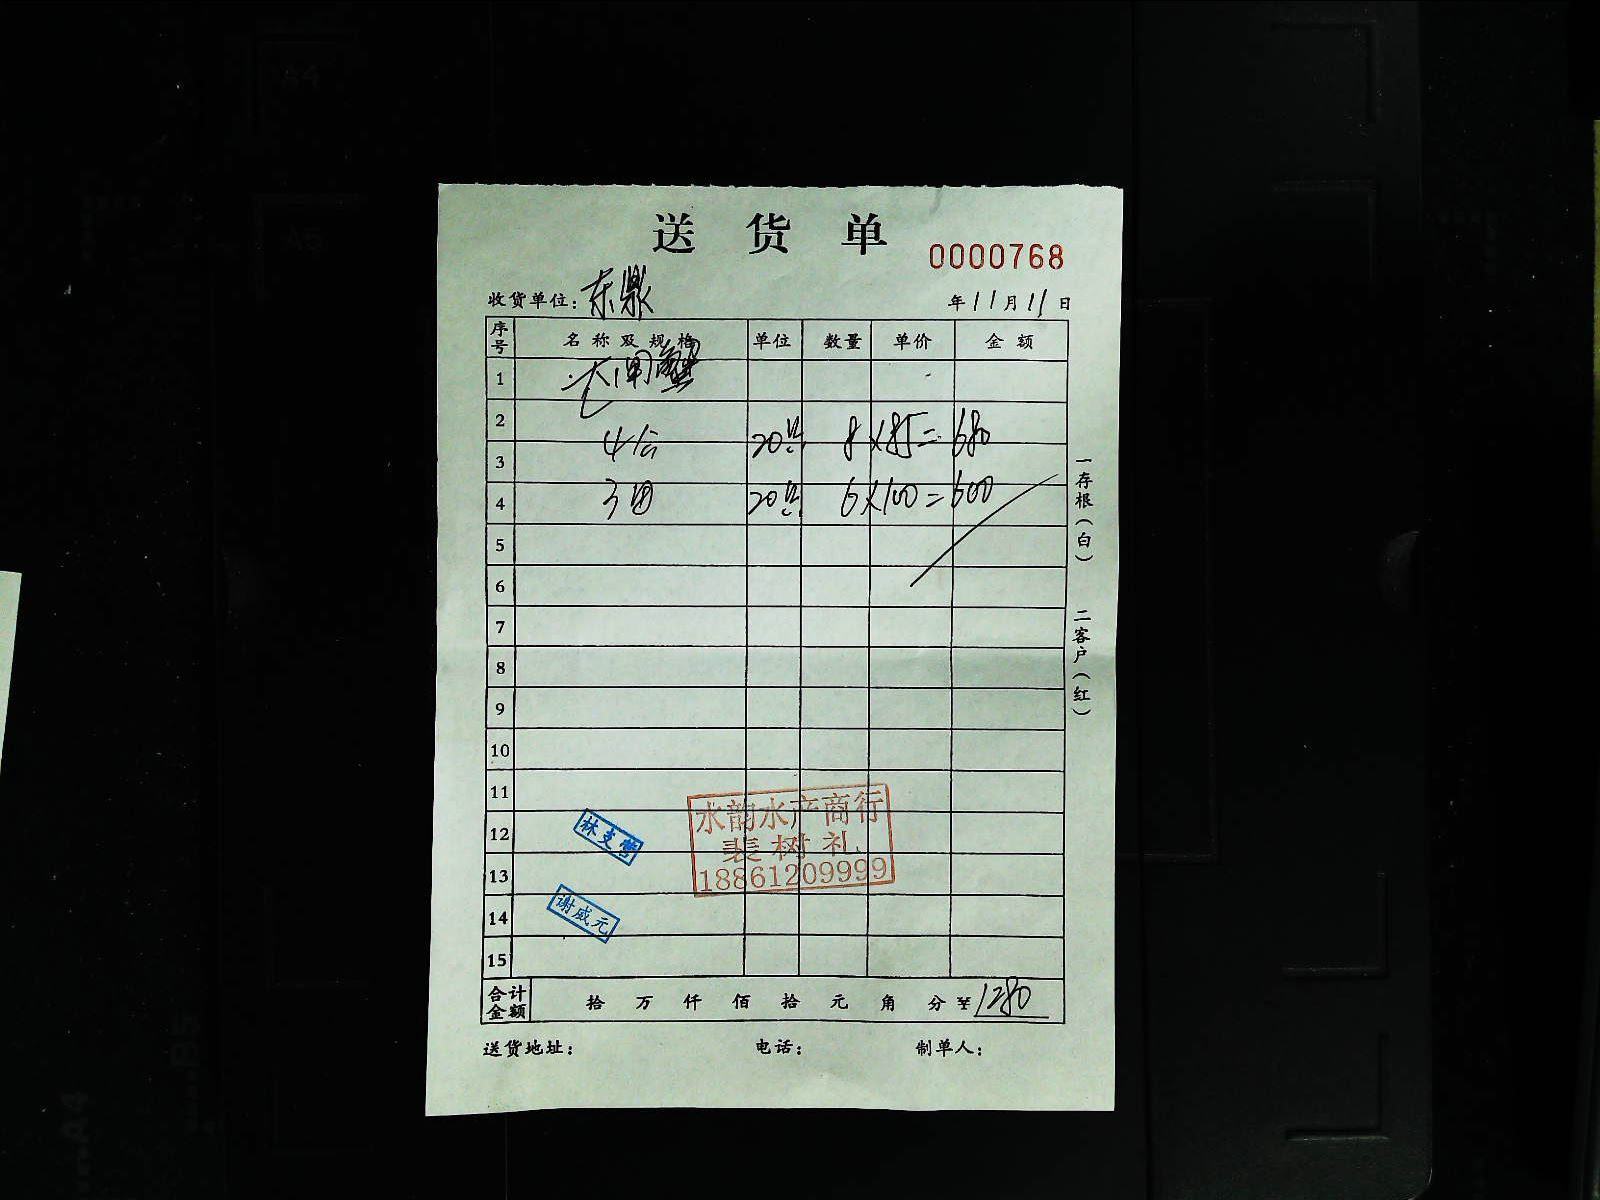 送货单
0000768
收货单位：东鼎
年11月11日
序号 名称及规格 单位 数量 单价 金额
1 大闸蟹
2
4公 20只 8×85=680
3
3母 20只 6×100=600
4
5
6
7
8
9
10
11
12
13
14
15
水韵水产商行
裴树礼
18861209999
林支营
谢成元
合计金额 拾 万 仟 佰 拾 元 角 分 ¥1280
送货地址： 电话： 制单人：
一存根（白） 二客户（红）
A4
A5
B5
A4